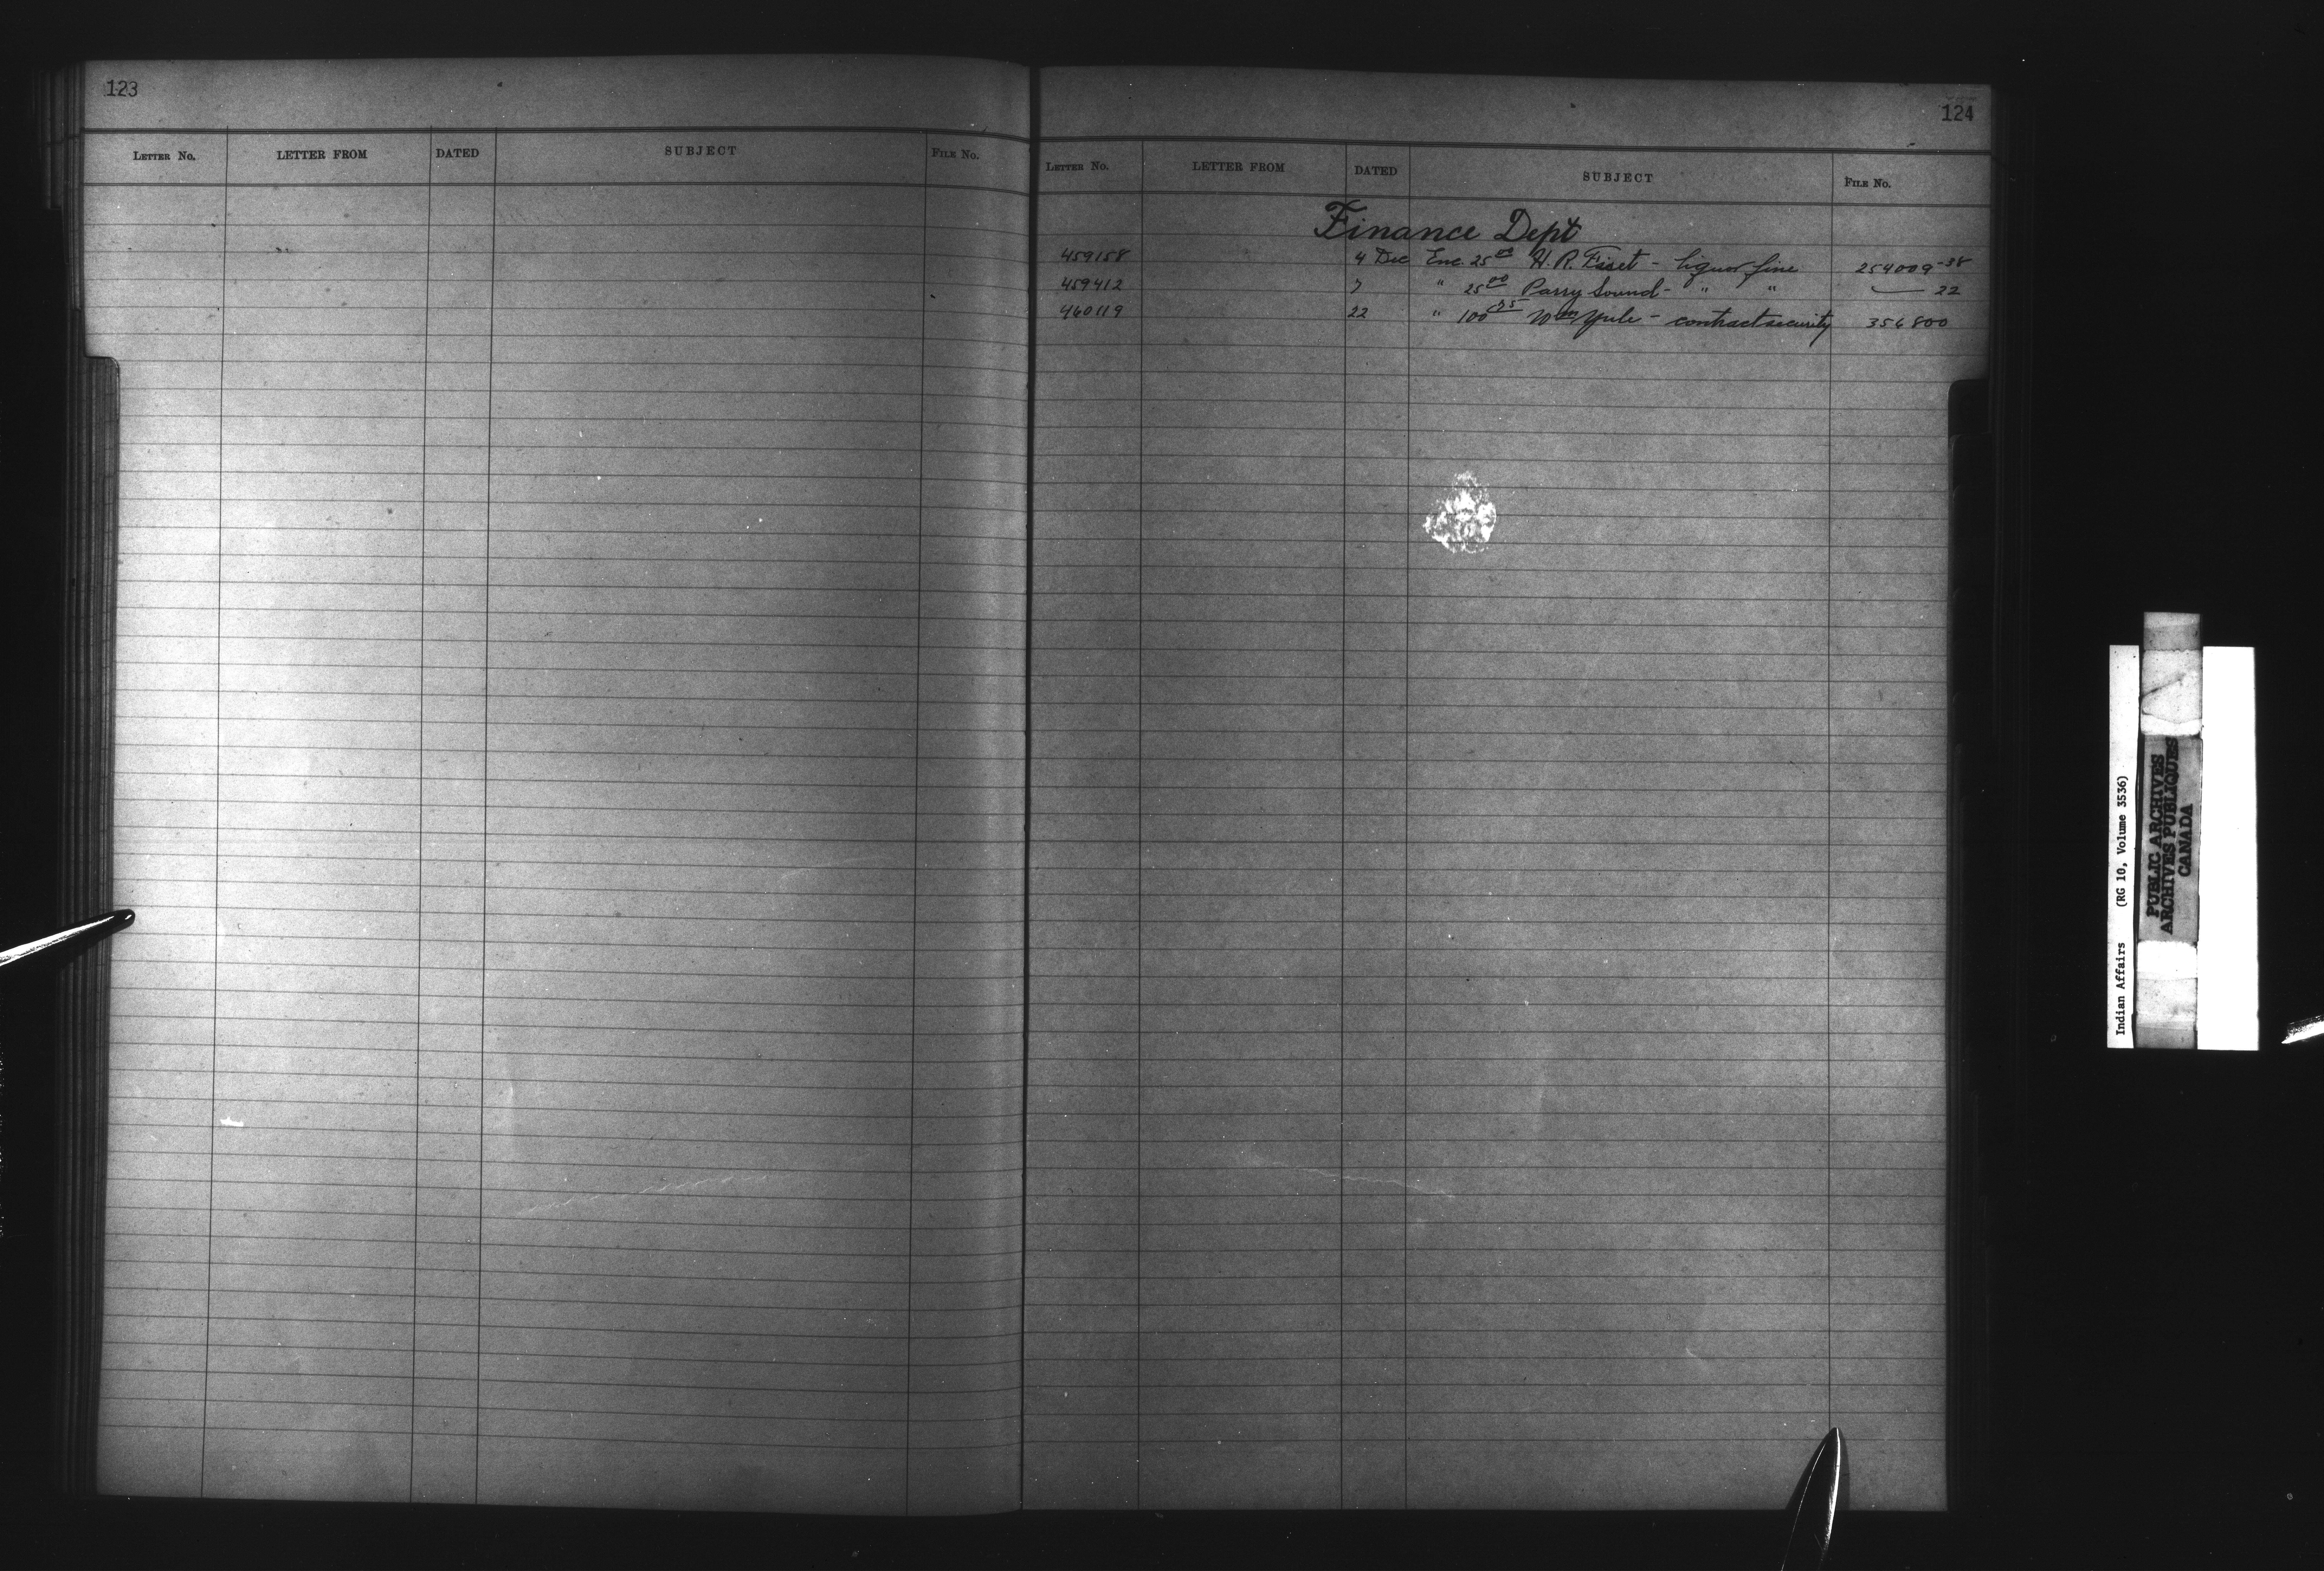 123
LETTER No. LETTER FROM DATED SUBJECT FILE No.
124
LETTER No. LETTER FROM DATED SUBJECT FILE No.
Finance Dept
459158 4 Dec Enc. 25 00 H. R. Fiset - liquor fine 254009-38
459412 7 " 25 00 Parry Sound - " " — 22
460119 22 " 100 Wm Yule - contract security 356800
Indian Affairs (RG 10, Volume 3536)
PUBLIC ARCHIVES
ARCHIVES PUBLIQUES
CANADA